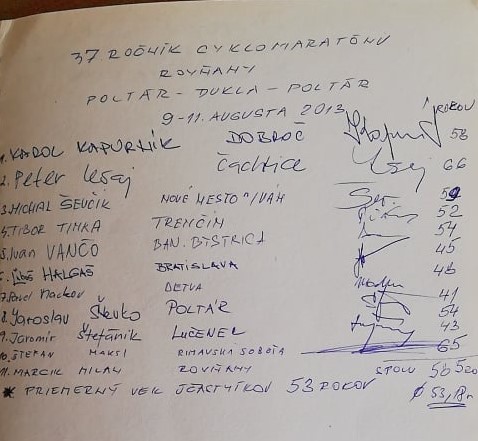 37 ROČNÍK CYKLOMARATÓNU
ROVŇANY
POLTÁR - DUKLA - POLTÁR
9-11. AUGUSTA 2013
ROKOV
1. KAROL KAPURNÍK DOBROČ 58
2. Peter Čachtice 66
3. MICHAL ŠEVČÍK NOVÉ MESTO n/VÁH 59
4. TIBOR TIMKA TRENČÍN 52
5. Ivan VANČO BAN. BYSTRICA 54
6. HALGAŠ BRATISLAVA 45
7. Pavel Mackov DETVA 46
8. Jaroslav Števko POLTÁR 41
9. Jaromír Štefánik LUČENEC 54
10. ŠTEFAN MAKSI RIMAVSKÁ SOBOTA 43
11. MARCIK MILAN ROVŇANY 65
* PRIEMERNÝ VEK ÚČASTNÍKOV 53 ROKOV
Ø 53,18 r.